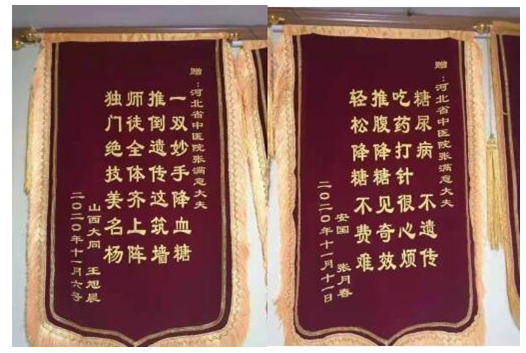 赠：河北省中医院张满意大夫
一双妙手降血糖
推倒遗传这筑墙
师徒全体齐上阵
独门绝技美名杨
山西大同 王旭晨
二〇二〇年十一月六号
赠：河北省中医院张满意大夫
糖尿病 不遗传
吃药打针很心烦
推腹降糖见奇效
轻松降糖不费难
安国 张月春
二〇二〇年十一月十一日